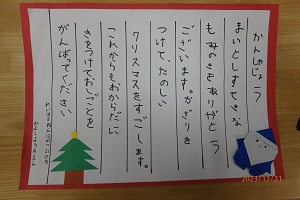 かんしゃじょう
まいとしすてきな
もみのきをありがとう
ございます。かざりを
つけて、たのしい
クリスマスをすごします。
これからもおからだに
きをつけておしごとを
がんばってください